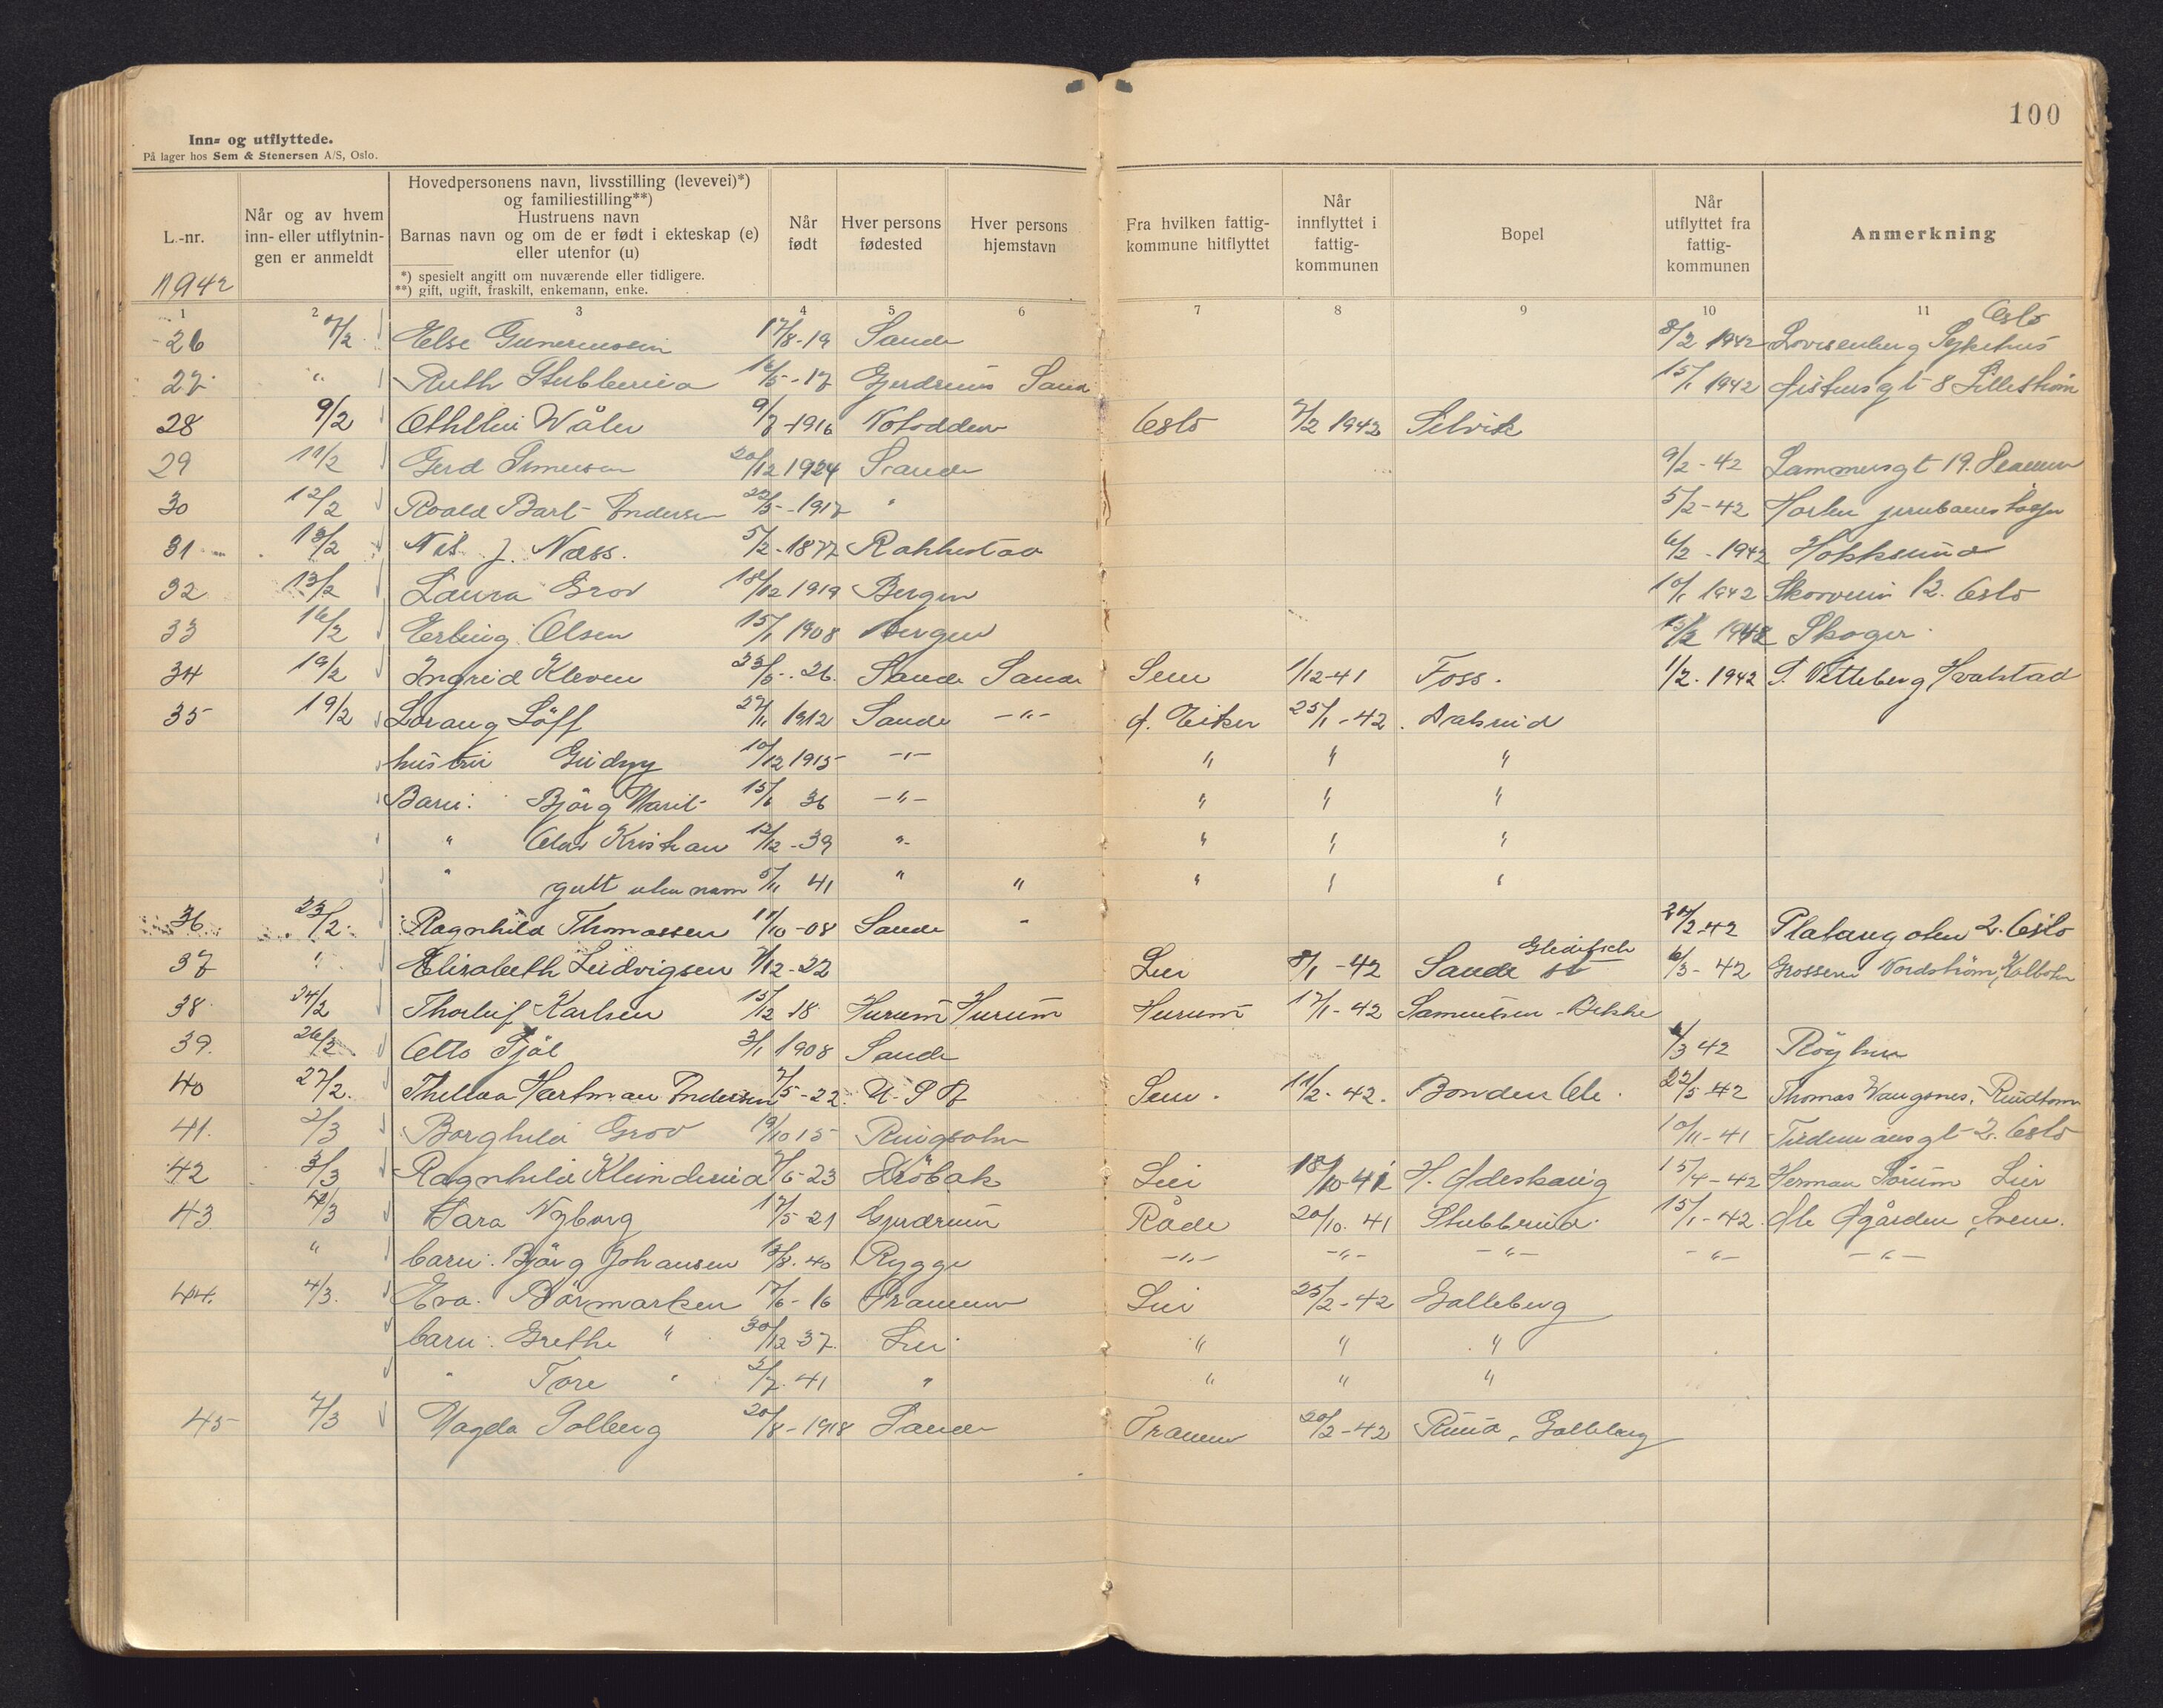 100
Inn= og utflyttede.
På lager hos Sem & Stenersen A/S, Oslo.
L.-nr.
1942
Når og av hvem
inn- eller utflytnin-
gen er anmeldt
Hovedpersonens navn, livsstilling (levevei)*)
og familiestilling**)
Hustruens navn
Barnas navn og om de er født i ekteskap (e)
eller utenfor (u)
*) spesielt angitt om nuværende eller tidligere.
**) gift, ugift, fraskilt, enkemann, enke.
Når
født
Hver persons
fødested
Hver persons
hjemstavn
Fra hvilken fattig-
kommune hitflyttet
Når
innflyttet i
fattig-
kommunen
Bopel
Når
utflyttet fra
fattig-
kommunen
Anmerkning
1 2 3 4 5 6 7 8 9 10 11
Oslo
26 7/2 Else 17/8-19 Sande 8/2 1942 Lovisenberg Sykehus
27 " Ruth Stubberud 16/5-17 Gjerdrum Sand 15/1 1942 8 Lillestrøm
28 9/2 Wåler 9/7-1916 Notodden Oslo 7/2 1942 Selvik
29 11/2 Gerd 20/12 1924 Sande 9/2-42 19.
30 12/2 Roald Bart-Andersen 22/5-1917 " 5/2-42 Horten
31 13/2 Nils J. Næss. 5/2-1877 Rakkestad 6/2-1942 Hokksund
32 13/2 Laura Grov 18/12 1919 Bergen 10/1 1942 12. Oslo
33 16/2 Erling Olsen 15/1 1908 Bergen 13/2 1942 Skoger
34 19/2 Ingrid Kleven 23/5-26. Sande Sande Sem 1/12-41 Foss. 1/2. 1942 S. Vetteberg Hvalstad
35 19/2 Lorang Löff 27/11 1912 Sande -"- Ø. Eiker 25/1-42
hustru Gudny 10/12 1915 -"- " " "
Barn: Bjørg Marit 15/6 36 -"- " " "
" Olav Kristian 12/12-39 " " " "
" gutt uten navn 5/11 41 " " " " "
36. 23/2. Ragnhild Thomassen 11/10-08 Sande " 24/2-42 2. Oslo
Gleditsch
37 " Elisabeth Ludvigsen 7/12-22 Lier 8/1-42 Sande st 6/3-42 Grosserer Nordstrøm, Kolbotn
38 24/2 Thorleif Karlsen 15/12 18 Hurum Hurum Hurum 17/1-42 Samuelsen-Bekke
39. 26/2 Otto 3/1 1908 Sande 6/3 42 Röyken
40 27/2. Thelma Hartman Andersen 7/5-22. U-S A Sem. 11/2-42. Bonden Ole. 22/5 42 Thomas Vangsnes,
41. 2/3 Borghild Grov 19/10 15 10/11-41 Tidemansgt 2. Oslo
42 3/3 Ragnhild Klunderud 7/6-23 Drøbak Lier 18/10-41 H. Ødeskaug 15/4-42 Herman Sørum Lier
43 4/3 Sara Nyborg 17/5-21 Gjerdrum Råde 20/10. 41 Stubberud 15/1-42. Ole Øgården
" barn: Bjørg Johansen 13/8. 40 Rygge -"- -"- -"- -"- -"-
44. 4/3. Eva. Börmarken 17/6-16 Drammen Lier 25/2-42 Galleberg
barn: Grethe " 30/12-37. Lier " " "
" Tore " 3/7. 41 " " " "
45 7/3 Magda Solberg 20/8-1918 Sande Drammen 20/2-42 Ruud, Galleberg